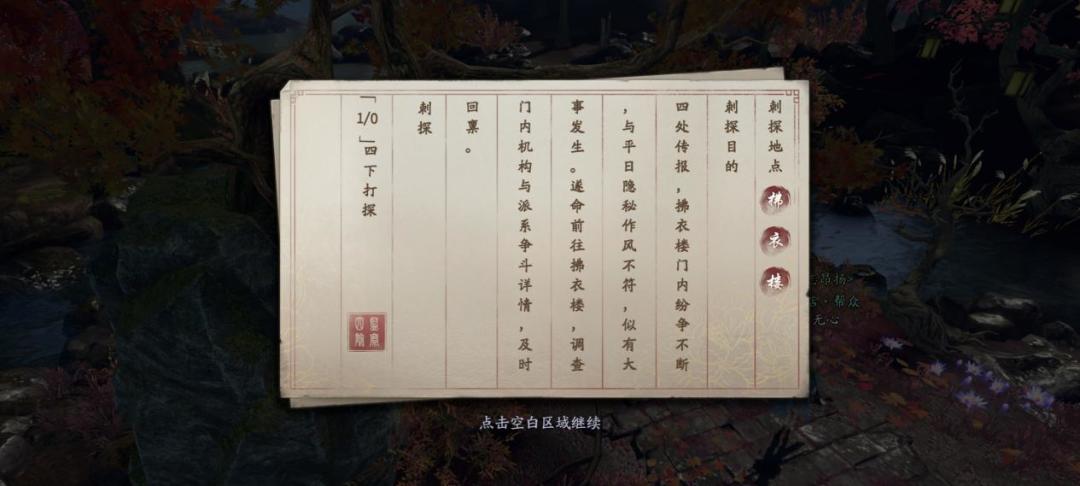 刺探地点 拂衣楼
刺探目的
四处传报，拂衣楼门内纷争不断
，与平日隐秘作风不符，似有大
事发生。遂命前往拂衣楼，调查
门内机构与派系争斗详情，及时
回禀。
刺探
「1/0」四下打探
帮众
无心
点击空白区域继续